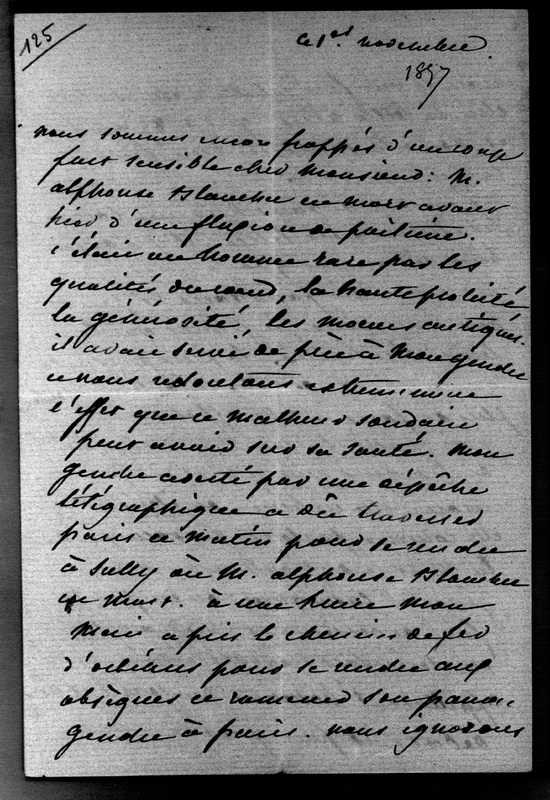 125
ce 1er novembre.
1857
nous sommes encore frappés d'un coup
fort sensible cher monsieur: M.
alphonse Blanche est mort avant
hier d'une fluxion de poitrine.
c'était un homme rare par les
qualités du coeur, la haute probité
la générosité, les moeurs antiques.
il avait servi de père à mon gendre
et nous redoutons extrêmement
l'effet que ce malheur soudain
peut avoir sur sa santé. mon
gendre averti par une dépêche
télégraphique a dû traverser
paris ce matin pour se rendre
à Sully où M. alphonse Blanche
est mort. à une heure mon
mari a pris le chemin de fer
d'orléans pour se rendre aux
obsèques et ramener son pauvre
gendre à paris. nous ignorons